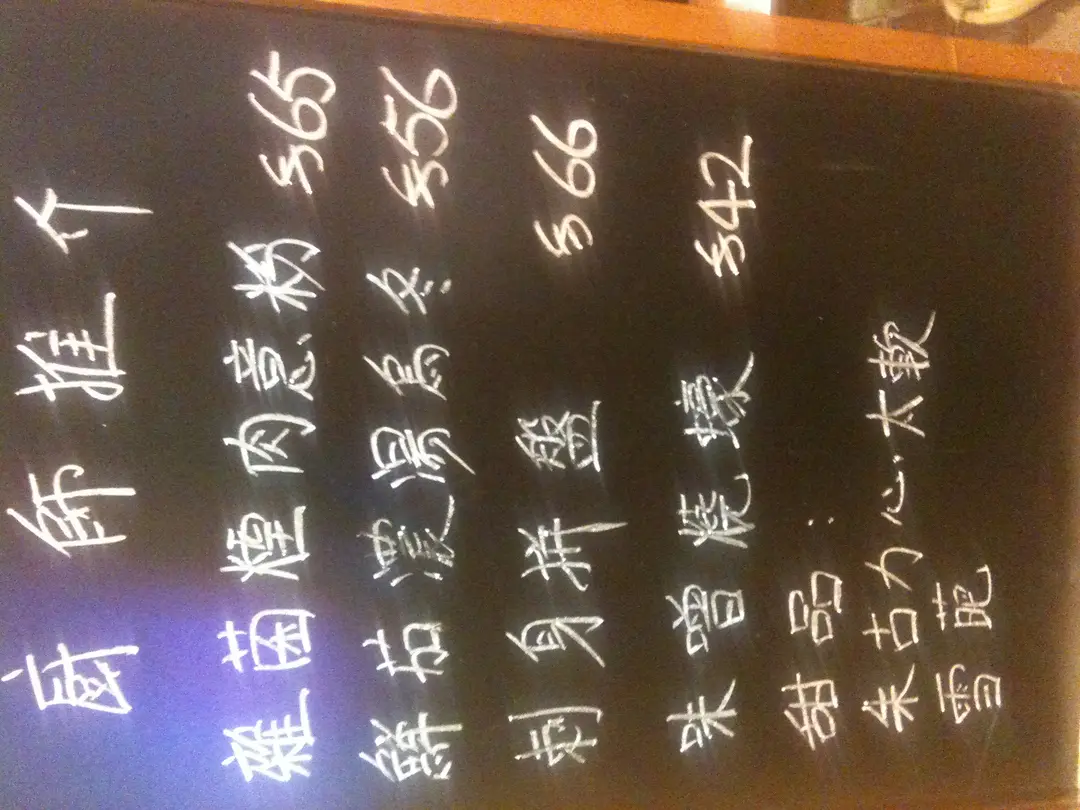 廚師推介
雜菌煙肉意粉 $65
鮮茄濃湯烏冬 $56
刺身拼盤 $66
味噌燒蠔 $42
甜品:
朱古力心太軟
雪葩